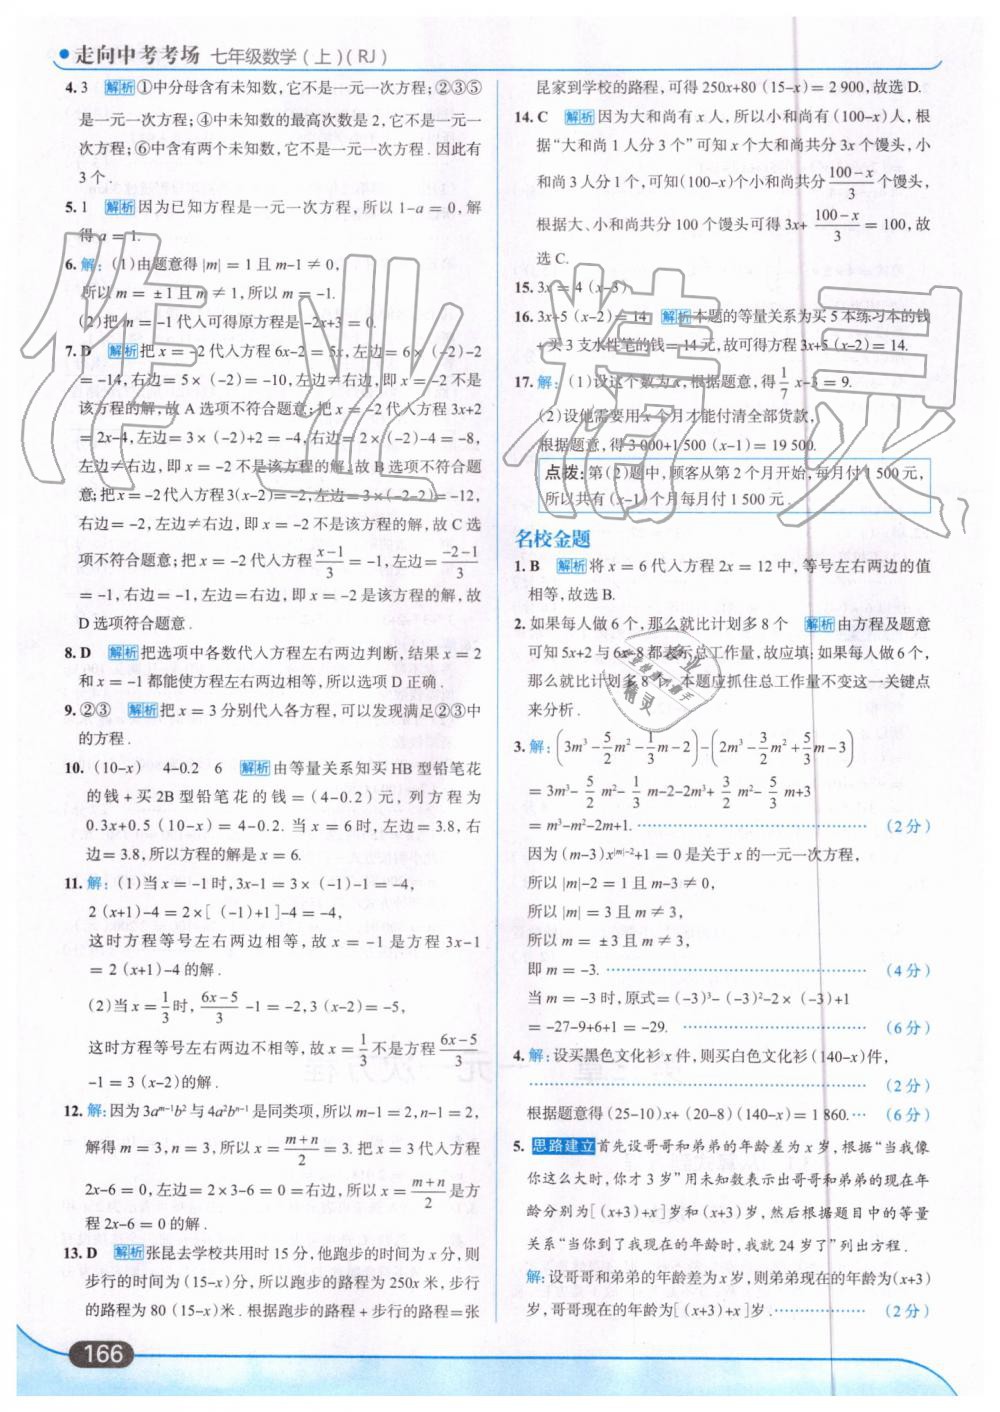 走向中考考场 七年级数学(上)(RJ)
4. 3 解析 ①中分母含有未知数,它不是一元一次方程;②③⑤
是一元一次方程;④中未知数的最高次数是2,它不是一元一
次方程;⑥中含有两个未知数,它不是一元一次方程.因此有
3个.
5. 1 解析 因为已知方程是一元一次方程,所以1-a=0,解
得a=1.
6. 解:(1)由题意得|m|=1且m-1≠0,
所以m=±1且m≠1,所以m=-1.
(2)把m=-1代入可得原方程是-2x+3=0.
7. D 解析 把x=-2代入方程6x-2=5x,左边=6×(-2)-2
=-14,右边=5×(-2)=-10,左边≠右边,即x=-2不是
该方程的解,故A选项不符合题意;把x=-2代入方程3x+2
=2x-4,左边=3×(-2)+2=-4,右边=2×(-2)-4=-8,
左边≠右边,即x=-2不是该方程的解,故B选项不符合题
意;把x=-2代入方程3(x-2)=-2,左边=3×(-2-2)=-12,
右边=-2,左边≠右边,即x=-2不是该方程的解,故C选
项不符合题意;把x=-2代入方程(x-1)/3=-1,左边=(-2-1)/3
=-1,右边=-1,左边=右边,即x=-2是该方程的解,故
D选项符合题意.
8. D 解析 把选项中各数代入方程左右两边判断,结果x=2
和x=-1都能使方程左右两边相等,所以选项D正确.
9. ②③ 解析 把x=3分别代入各方程,可以发现满足②③中
的方程.
10. (10-x) 4-0.2 6 解析 由等量关系知买HB型铅笔花
的钱+买2B型铅笔花的钱=(4-0.2)元,列方程为
0.3x+0.5(10-x)=4-0.2.当x=6时,左边=3.8,右
边=3.8,所以方程的解是x=6.
11. 解:(1)当x=-1时,3x-1=3×(-1)-1=-4,
2(x+1)-4=2×[(-1)+1]-4=-4,
这时方程等号左右两边相等,故x=-1是方程3x-1
=2(x+1)-4的解.
(2)当x=1/3时,(6x-5)/3-1=-2,3(x-2)=-5,
这时方程等号左右两边不相等,故x=1/3不是方程(6x-5)/3
-1=3(x-2)的解.
12. 解:因为3aᵐ⁻¹b²与4a²bⁿ⁻¹是同类项,所以m-1=2,n-1=2,
解得m=3,n=3,所以x=(m+n)/2=3.把x=3代入方程
2x-6=0,左边=2×3-6=0=右边,所以x=(m+n)/2是方
程2x-6=0的解.
13. D 解析 张昆去学校共用时15分,他跑步的时间为x分,则
步行的时间为(15-x)分,所以跑步的路程为250x米,步行
的路程为80(15-x)米.根据跑步的路程+步行的路程=张
昆家到学校的路程,可得250x+80(15-x)=2 900,故选D.
14. C 解析 因为大和尚有x人,所以小和尚有(100-x)人,根
据“大和尚1人分3个”可知x个大和尚共分3x个馒头,小
和尚3人分1个,可知(100-x)个小和尚共分(100-x)/3个馒头,
根据大、小和尚共分100个馒头可得3x+(100-x)/3=100,故
选C.
15. 3x=4(x-3)
16. 3x+5(x-2)=14 解析 本题的等量关系为买5本练习本的钱
+买3支水性笔的钱=14元,故可得方程3x+5(x-2)=14.
17. 解:(1)设这个数为x,根据题意,得1/7 x-3=9.
(2)设他需要用x个月才能付清全部货款,
根据题意,得3 000+1 500(x-1)=19 500.
点拨:第(2)题中,顾客从第2个月开始,每月付1 500元,
所以共有(x-1)个月每月付1 500元.
名校金题
1. B 解析 将x=6代入方程2x=12中,等号左右两边的值
相等,故选B.
2. 如果每人做6个,那么就比计划多8个 解析 由方程及题意
可知5x+2与6x-8都表示总工作量,故应填:如果每人做6个,
那么就比计划多8个.本题应抓住总工作量不变这一关键点
来分析.
3. 解:(3m³-5/2m²-1/3m-2)-(2m³-3/2m²+5/3m-3)
=3m³-5/2m²-1/3m-2-2m³+3/2m²-5/3m+3
=m³-m²-2m+1. (2分)
因为(m-3)x^(|m|-2)+1=0是关于x的一元一次方程,
所以|m|-2=1且m-3≠0,
所以|m|=3且m≠3,
所以m=±3且m≠3,
即m=-3. (4分)
当m=-3时,原式=(-3)³-(-3)²-2×(-3)+1
=-27-9+6+1=-29. (6分)
4. 解:设买黑色文化衫x件,则买白色文化衫(140-x)件,
(2分)
根据题意得(25-10)x+(20-8)(140-x)=1 860. (6分)
5. 思路建立 首先设哥哥和弟弟的年龄差为x岁,根据“当我像
你这么大时,你才3岁”用未知数表示出哥哥和弟弟的现在年
龄分别为[(x+3)+x]岁和(x+3)岁,然后根据题目中的等量
关系“当你到了我现在的年龄时,我就24岁了”列出方程.
解:设哥哥和弟弟的年龄差为x岁,则弟弟现在的年龄为(x+3)
岁,哥哥现在的年龄为[(x+3)+x]岁. (2分)
166
作业精灵